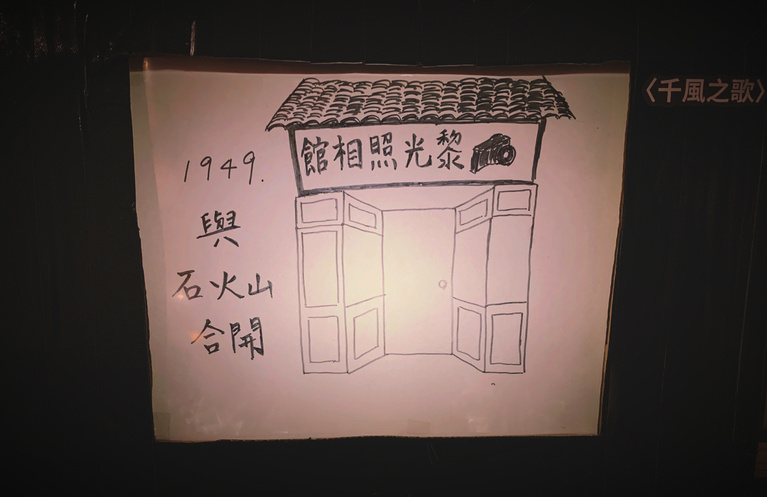 〈千風之歌〉
黎光照相館
1949.
與
石火山
合開